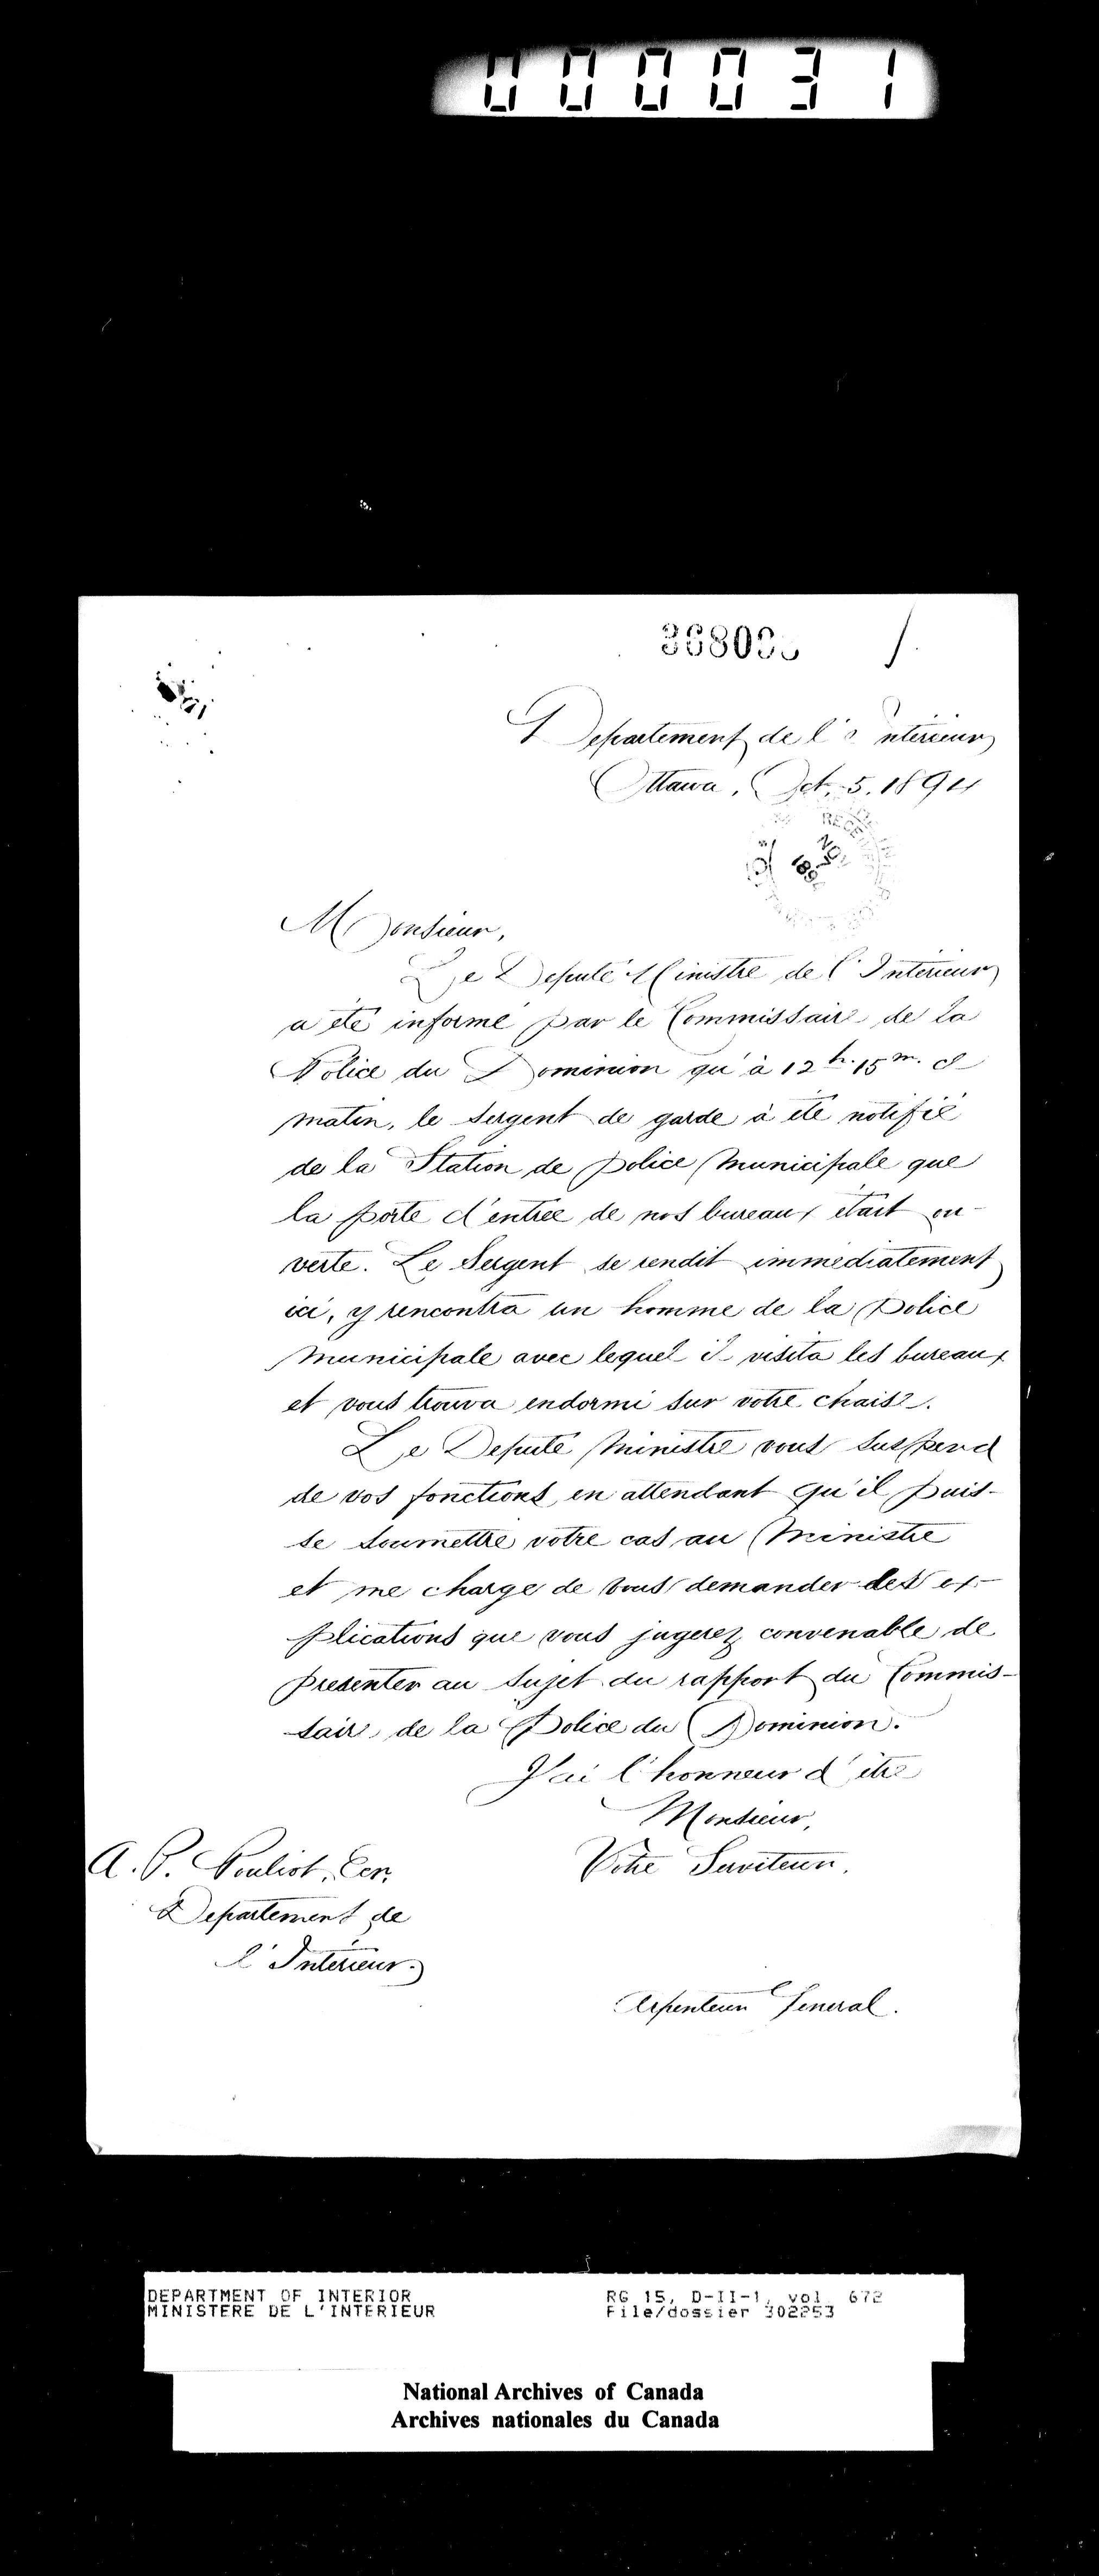 000031
Departement de l'Interieur
Ottawa, Oct. 5. 1894
Monsieur,
Le Deputé Ministre de l'Interieur
a été informé par le Commissaire de la
Police du Dominion qu'à 12 h. 15 m. ce
matin, le Sergent de garde à été notifié
de la Station de police Municipale que
la porte d'entrée de nos bureaux était ou-
verte. Le Sergent se rendit immediatement
ici, y rencontra un homme de la Police
Municipale avec lequel il visita les bureaux
et vous trouva endormi sur votre chaise.
Le Deputé Ministre vous suspend
de vos fonctions, en attendant qu'il puis-
se soumettre votre cas au Ministre
et me charge de vous demander les ex-
plications que vous jugerez convenable de
presenter au sujet du rapport du Commis-
saire de la Police du Dominion.
J'ai l'honneur d'être
Monsieur,
Votre Serviteur,
A. P. Pouliot, Ecr,
Departement de
l'Intérieur.
Arpenteur Géneral.
DEPARTMENT OF INTERIOR RG 15, D-II-1, vol. 672
MINISTERE DE L'INTERIEUR File/dossier 302253
National Archives of Canada
Archives nationales du Canada